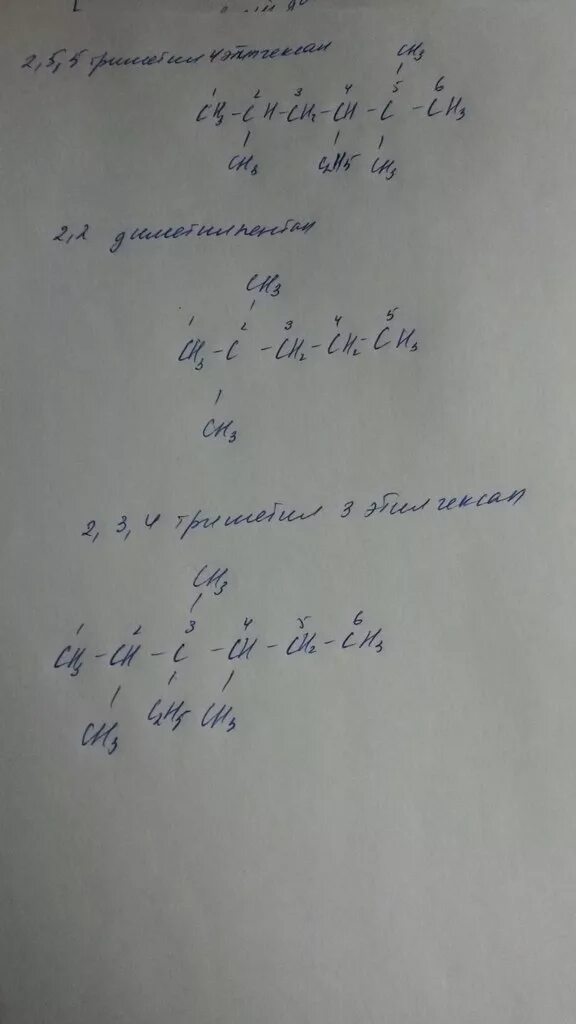 2,5,5 триметил 4этилгексан
CH3
1 2 3 4 5 6
CH3-CH-CH2-CH-C-CH3
CH3 C2H5 CH3
2,2 диметилпентан
CH3
1 2 3 4 5
CH3-C-CH2-CH2-CH3
CH3
2, 3, 4 триметил 3 этилгексан
CH3
1 2 3 4 5 6
CH3-CH-C-CH-CH2-CH3
CH3 C2H5 CH3